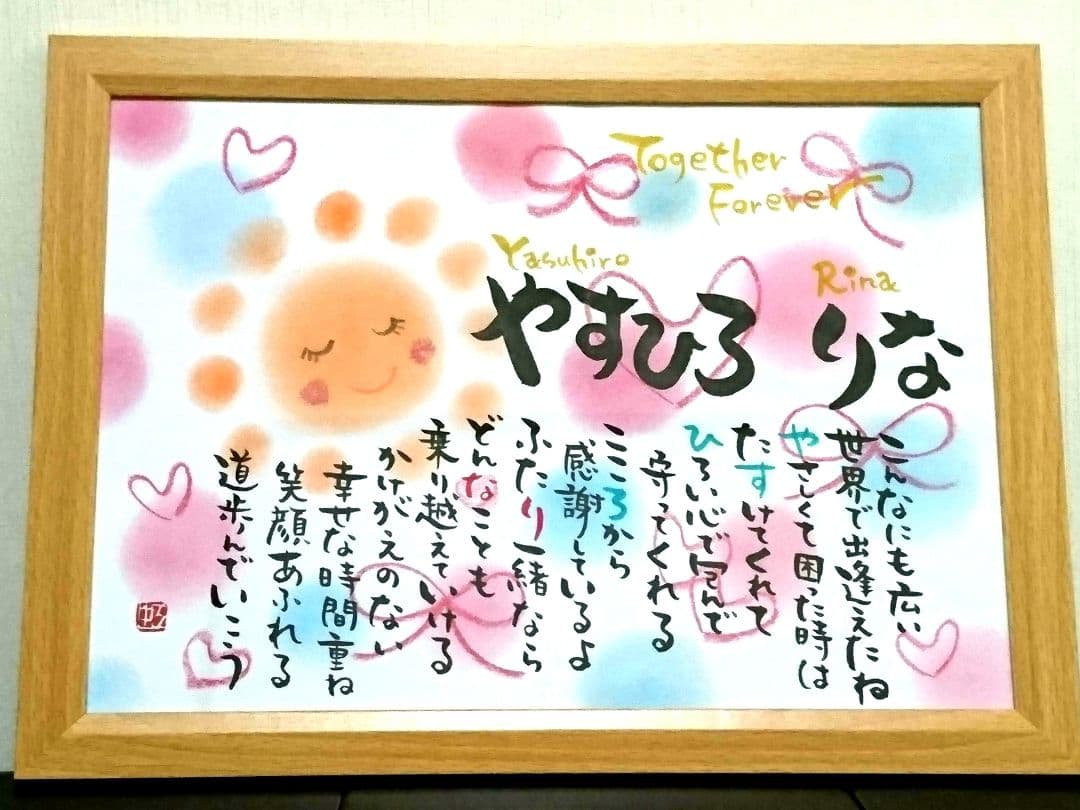 Together
Forever
Yasuhiro
Rina
やすひろ りな
こんなにも広い
世界で出逢えたね
やさしくて困った時は
たすけてくれて
ひろい心で包んで
守ってくれる
こころから
感謝しているよ
ふたり一緒なら
どんなことも
乗り越えていける
かけがえのない
幸せな時間重ね
笑顔あふれる
道歩んでいこう